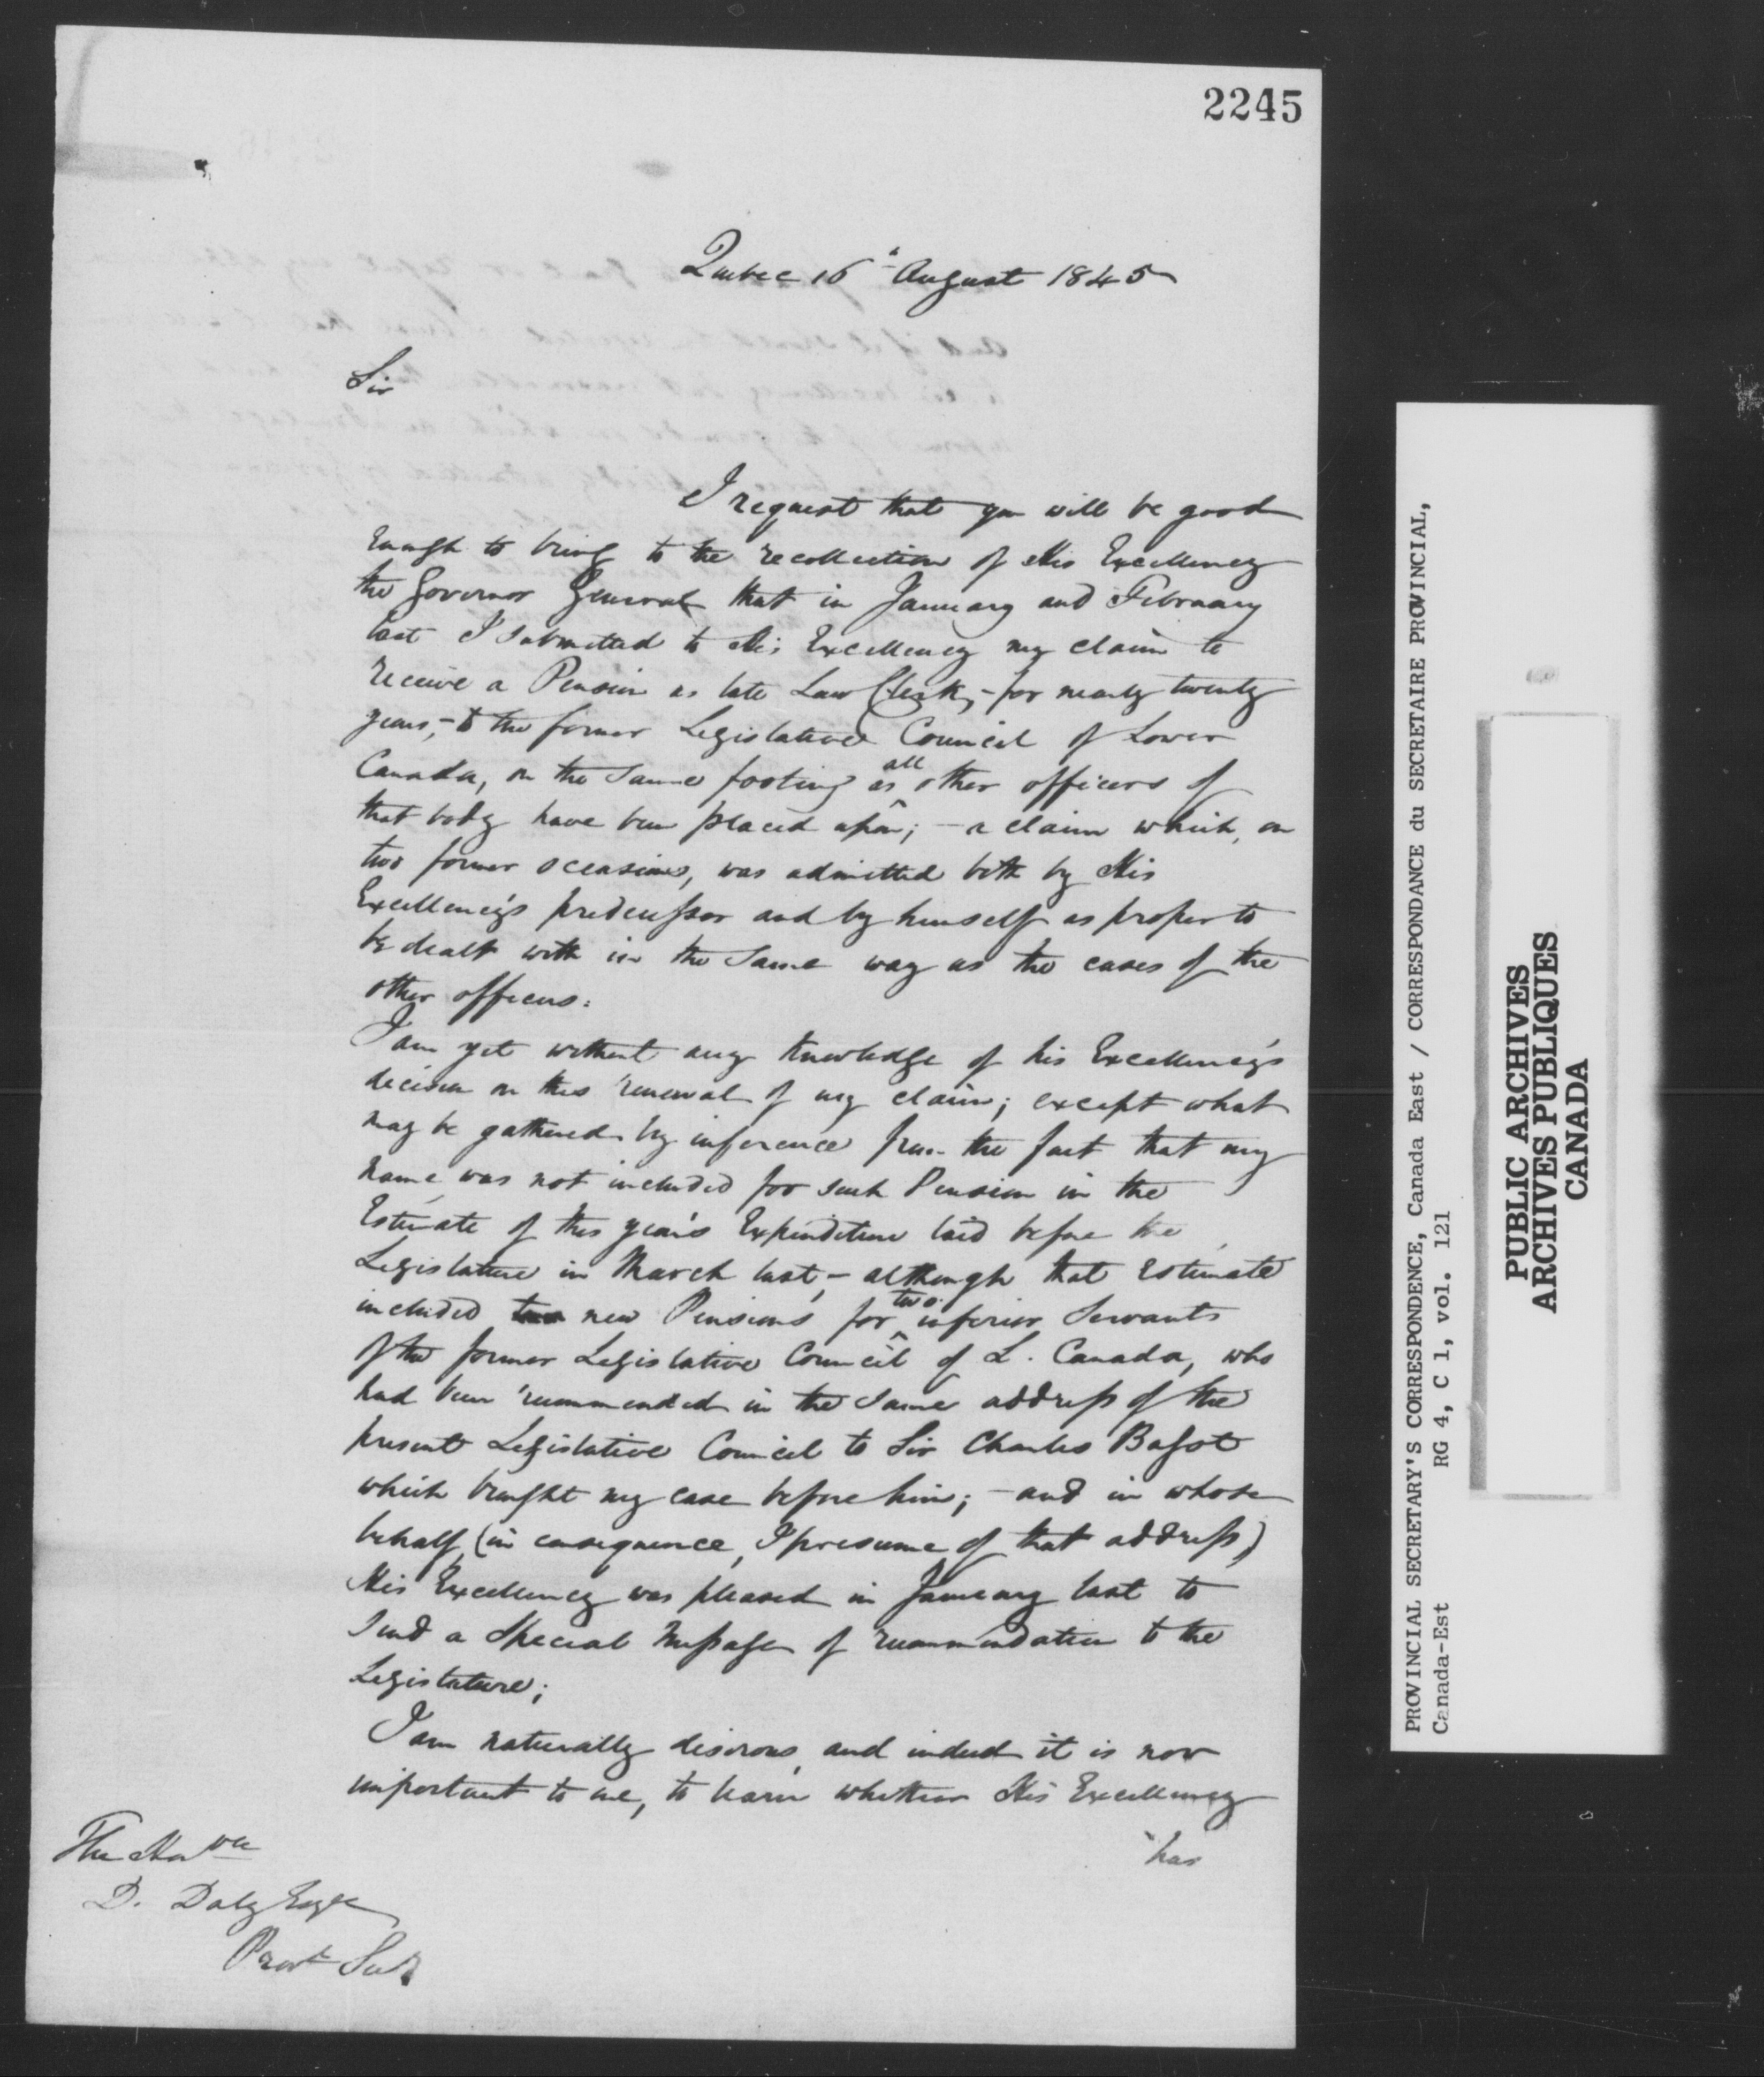 2245
Quebec 16th August 1845
Sir
I request that you will be good
enough to bring to the recollection of His Excellency
the Governor General that in January and February
last I submitted to His Excellency my claim to
receive a Pension as late Law Clerk, - for nearly twenty
years, - to the former Legislative Council of Lower
Canada, on the same footing as all other officers of
that body have been placed upon; - a claim which, on
two former occasions, was admitted both by His
Excellency's predecessor and by himself as proper to
be dealt with in the same way as the cases of the
other officers.
I am yet without any knowledge of his Excellency's
decision on this renewal of my claim; except what
may be gathered by inference from the fact that my
name was not included for such Pension in the
Estimate of this year's Expenditure laid before the
Legislature in March last, - although that Estimate
included two new Pensions for two inferior Servants
of the former Legislative Council of L. Canada, who
had been recommended in the same address of the
present Legislative Council to Sir Charles Bagot
which brought my case before him; - and in whose
behalf (in consequence, I presume of that address)
His Excellency was pleased in January last to
send a Special Message of recommendation to the
Legislature;
I am naturally desirous, and indeed it is now
important to me, to learn whether His Excellency
has
The Honble
D. Daly Esqre
Provl Secy
PROVINCIAL SECRETARY'S CORRESPONDENCE, Canada East / CORRESPONDANCE du SECRETAIRE PROVINCIAL,
Canada-Est RG 4, C 1, vol. 121
PUBLIC ARCHIVES
ARCHIVES PUBLIQUES
CANADA